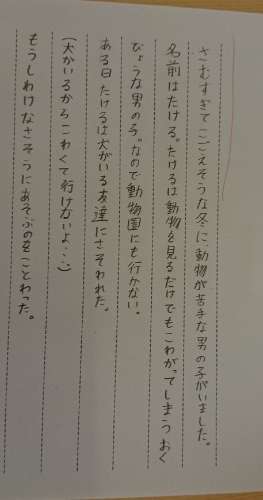 さむすぎてこごえそうな冬に、動物が苦手な男の子がいました。
名前はたける。たけるは動物を見るだけでもこわがってしまうおく
びょうな男の子。なので動物園にも行かない。
ある日たけるは犬がいる友達にさそわれた。
(犬がいるからこわくて行けないよ…)
もうしわけなさそうにあそぶのをことわった。